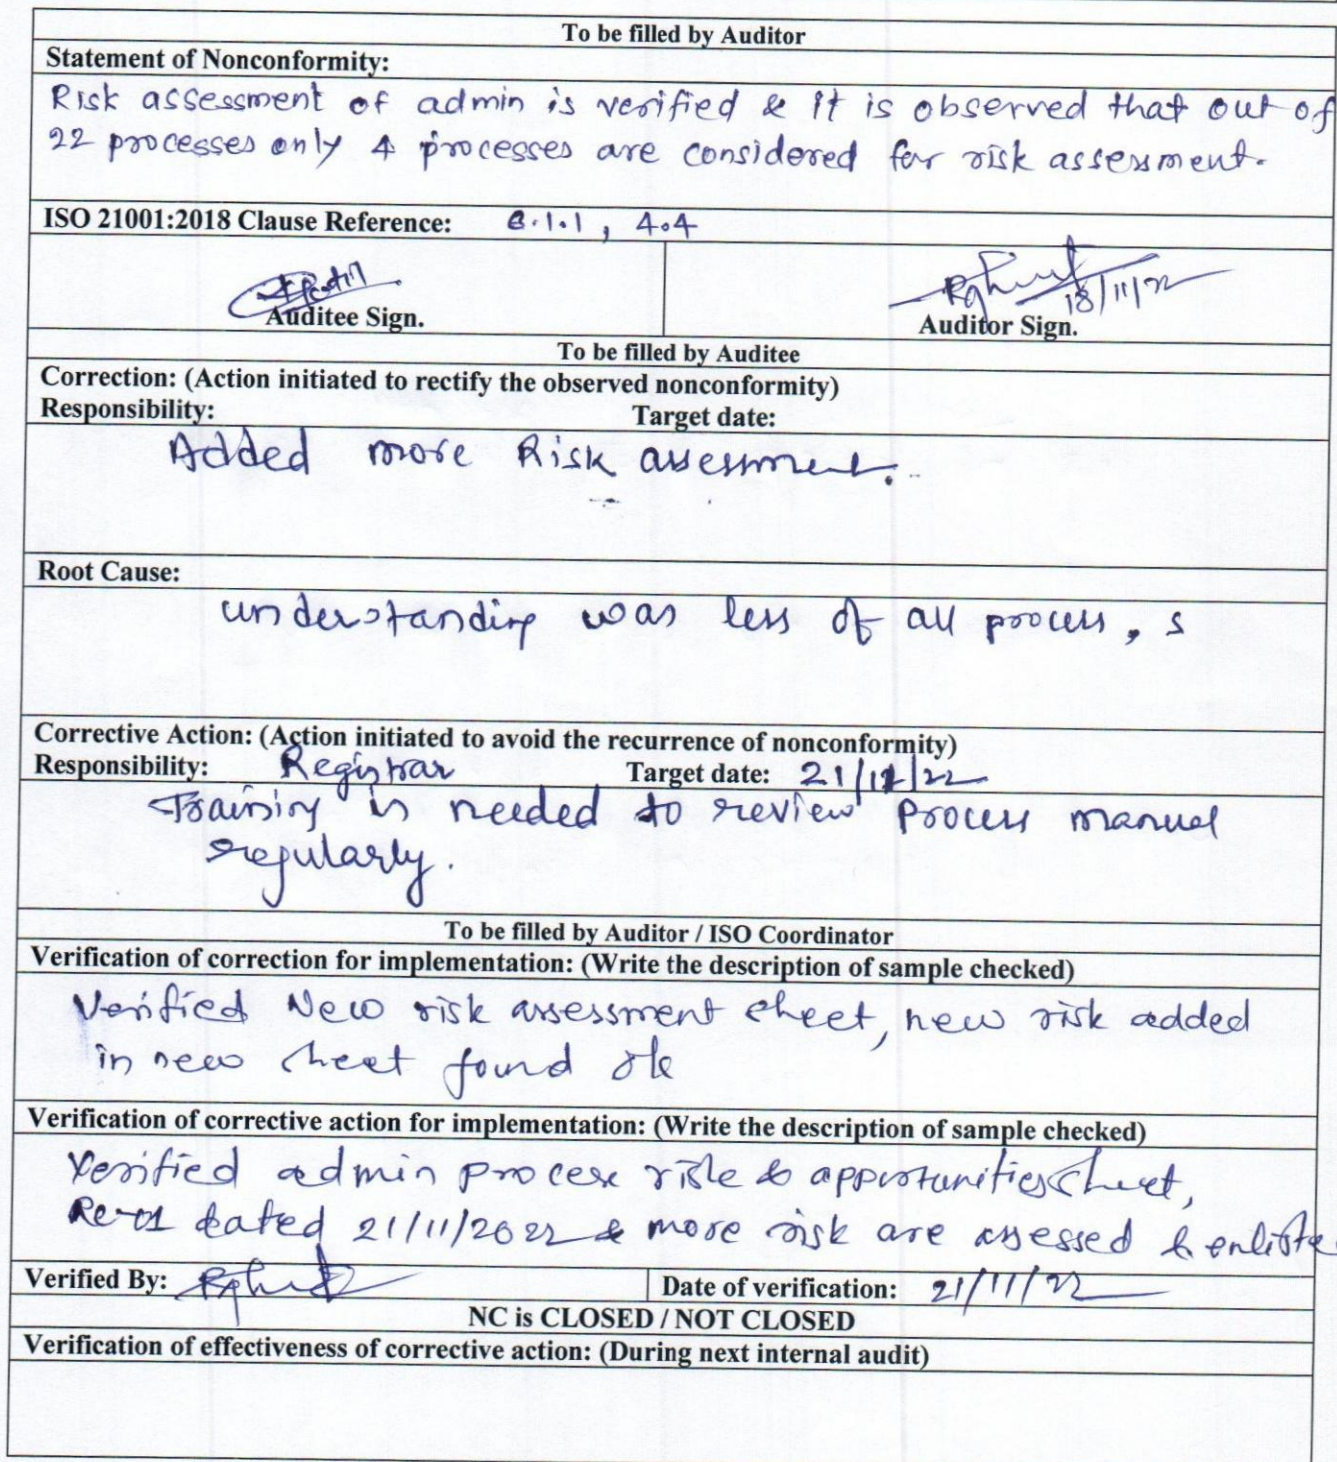 To be filled by Auditor
Statement of Nonconformity:
Risk assessment of admin is verified & it is observed that out of
22 processes only 4 processes are considered for risk assessment.
ISO 21001:2018 Clause Reference: 6.1.1, 4.4
18/11/22
Auditee Sign. Auditor Sign.
To be filled by Auditee
Correction: (Action initiated to rectify the observed nonconformity)
Responsibility: Target date:
Added more Risk assessment.
Root Cause:
understanding was less of all process, s
Corrective Action: (Action initiated to avoid the recurrence of nonconformity)
Responsibility: Registrar Target date: 21/11/22
Training is needed to review Process manual
regularly.
To be filled by Auditor / ISO Coordinator
Verification of correction for implementation: (Write the description of sample checked)
Verified New risk assessment sheet, new risk added
in new sheet found ok
Verification of corrective action for implementation: (Write the description of sample checked)
Verified admin process risk & opportunities sheet,
dated 21/11/2022 & more risk are assessed & enliste
Verified By: Date of verification: 21/11/22
NC is CLOSED / NOT CLOSED
Verification of effectiveness of corrective action: (During next internal audit)